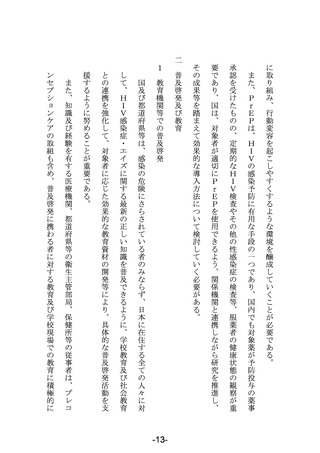 に取り組み、行動変容を起こしやすくするような環境を醸成していくことが必要である。
また、ＰｒＥＰは、ＨＩＶの感染予防に有用な手段の一つであり、国内でも対象薬が予防投与の薬事
承認を受けたものの、定期的なＨＩＶ検査やその他の性感染症の検査等、服薬者の健康状態の観察が重
要であり、国は、対象者が適切にＰｒＥＰを使用できるよう、関係機関と連携しながら研究を推進し、
その成果等を踏まえて効果的な導入方法について検討していく必要がある。
二　普及啓発及び教育
１　教育機関等での普及啓発
国及び都道府県等は、感染の危険にさらされている者のみならず、日本に在住する全ての人々に対
して、ＨＩＶ感染症・エイズに関する最新の正しい知識を普及できるように、学校教育及び社会教育
との連携を強化して、対象者に応じた効果的な教育資材の開発等により、具体的な普及啓発活動を支
援するように努めることが重要である。
また、知識及び経験を有する医療機関、都道府県等の衛生主管部局、保健所等の従事者は、プレコ
ンセプションケアの取組も含め、普及啓発に携わる者に対する教育及び学校現場での教育に積極的に
-13-